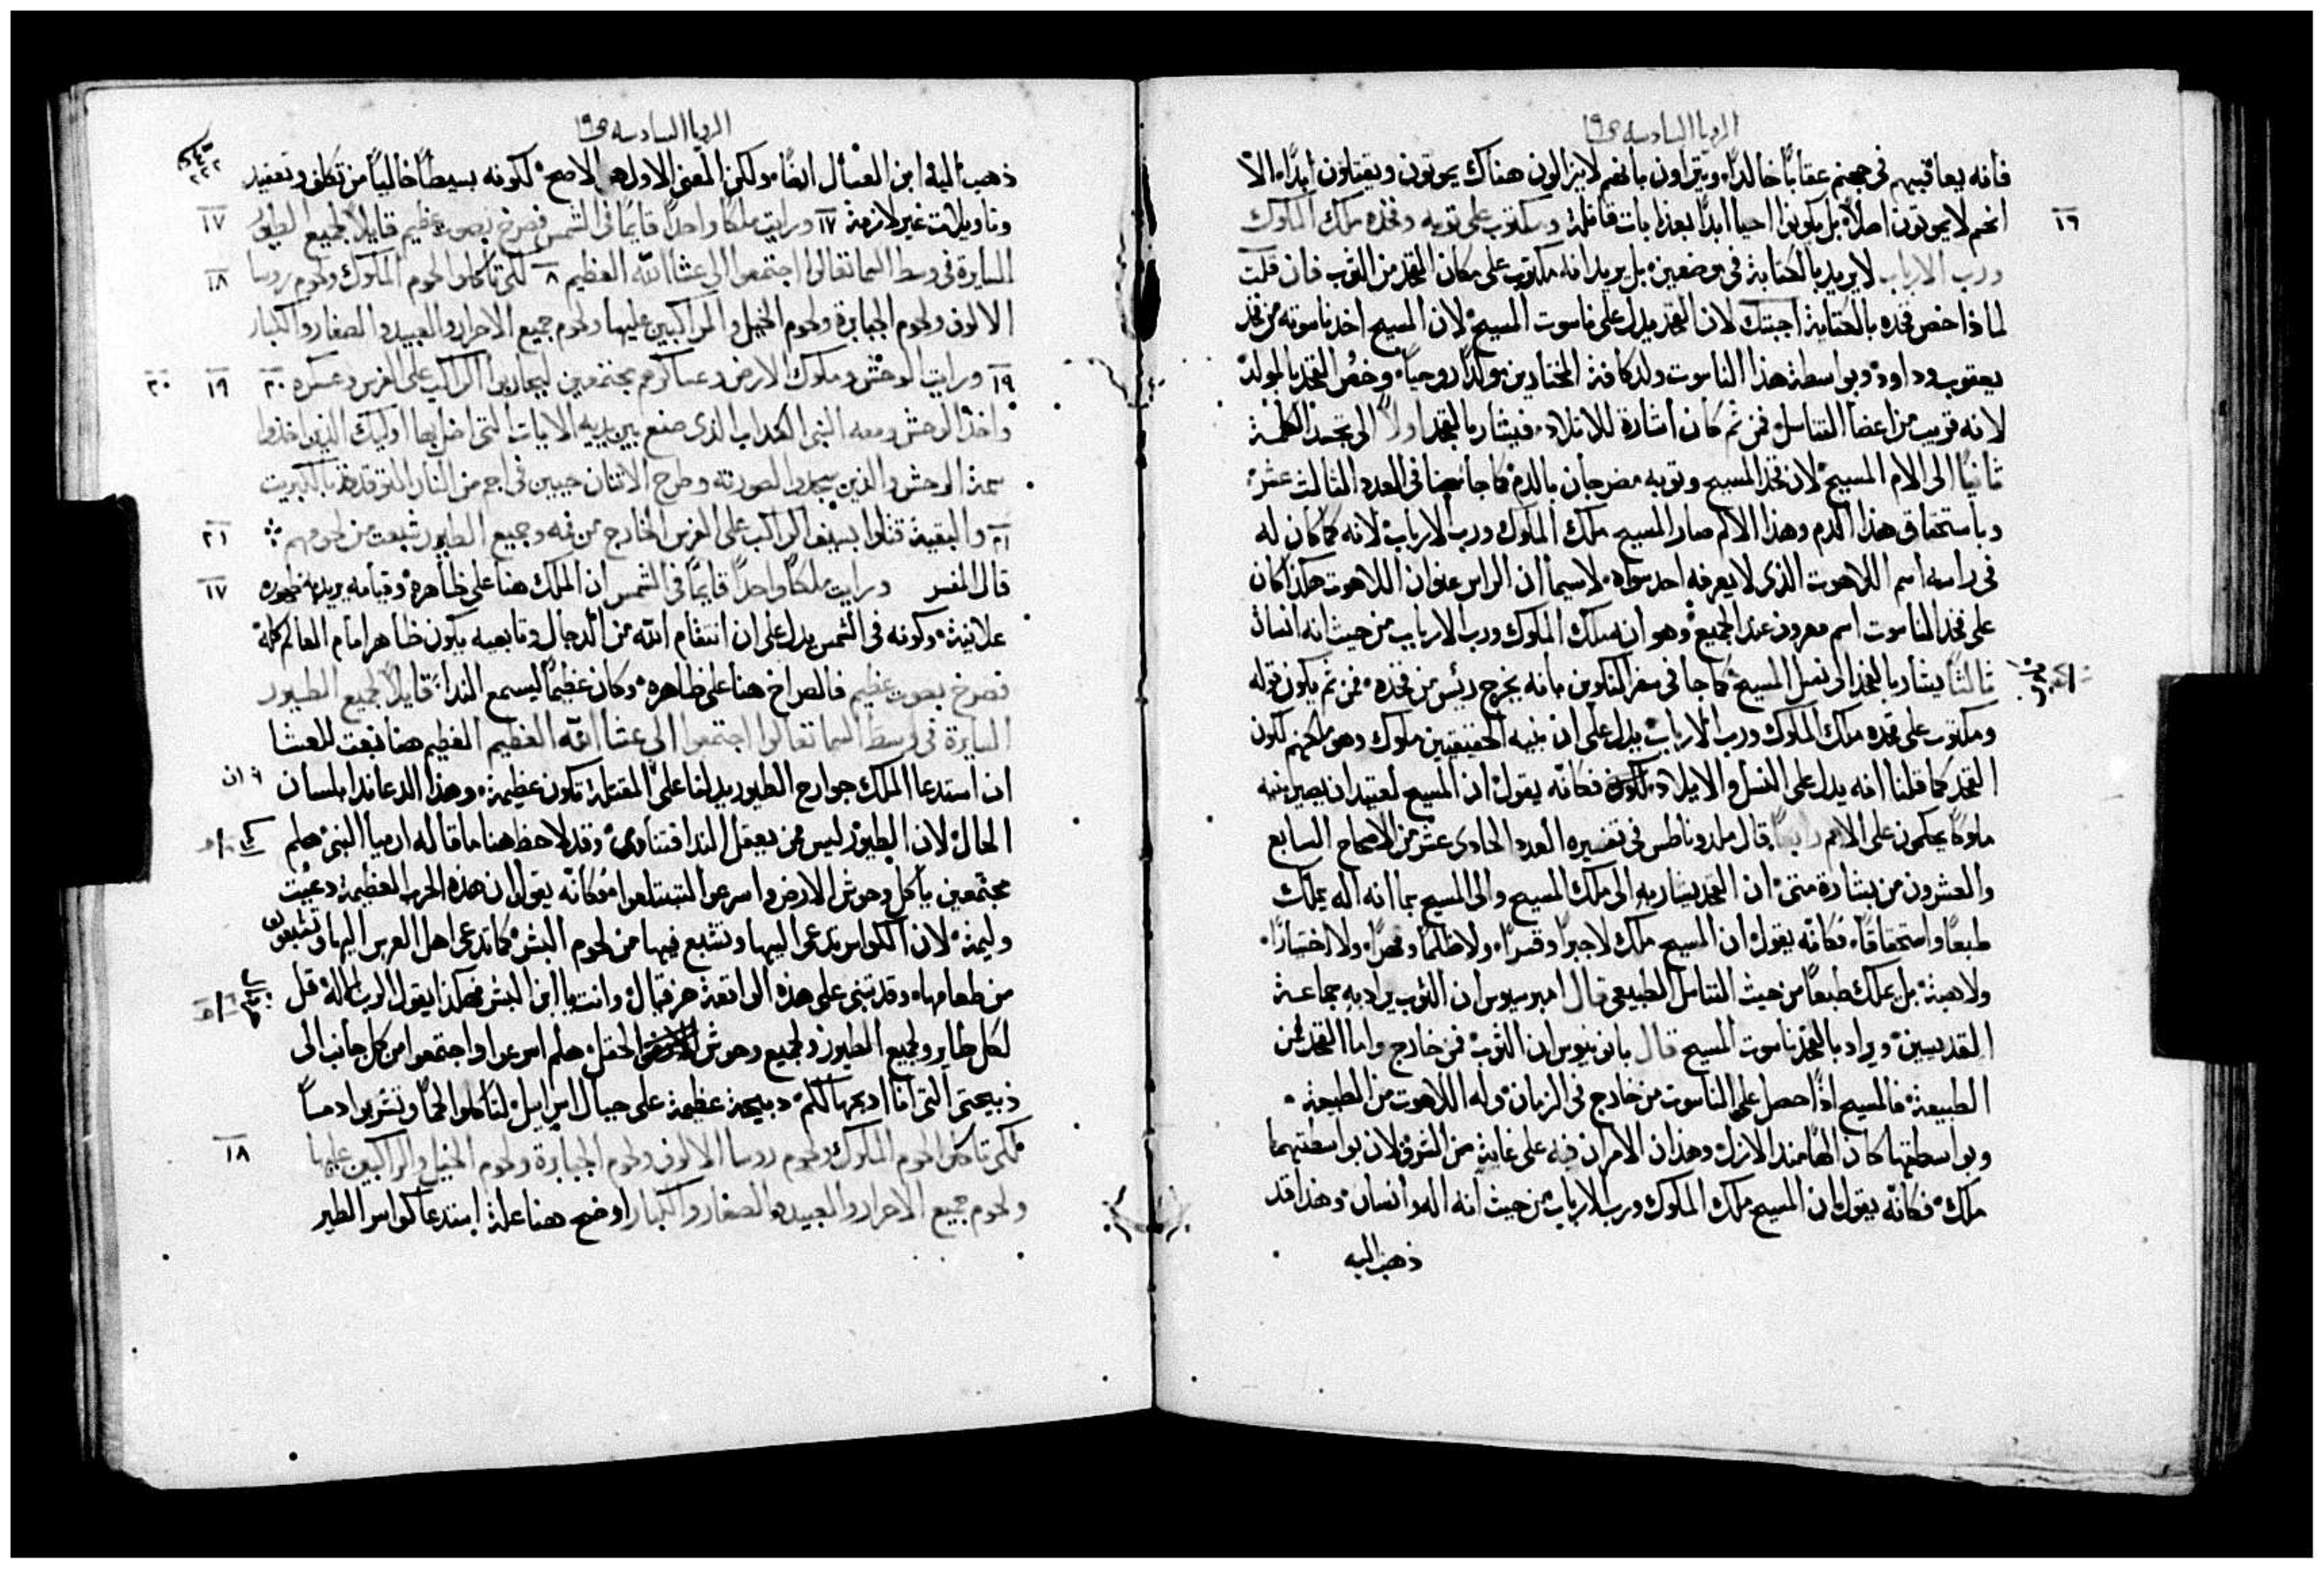 الرويا السادسه ص١٩
فانه يعاقبهم في جهنم عقابًا خالدًا، ويتراون بانهم لا يزالون هناك يموتون ويقتلون ابدًا، الا
١٦
انهم لا يموتون اصلاً بل يكونوا احيا ابدًا بعذابات قاتلة ومكتوب على ثوبه وفخذه ملك الملوك
ورب الارباب لا يريد بالكتابة في موضعين بل يريد انه مكتوب على مكان الفخذ من الثوب فان قلت
لماذا خص فخذه بالكتابة اجبتك لان الفخذ يدل على ناسوت المسيح لان المسيح اخذ ناسوته من فخذ
يعقوب وداود وبواسطة هذا الناسوت ولد كافة المختارين مولدًا روحيًا، وخص الفخذ بالمولد
لانه قريب من اعضا التناسل فمن ثم كان اشارة للايلاد، فيشار بالفخذ اولاً الى تجسد الكلمة
ثانيًا الى الام المسيح لان فخذ المسيح وثوبه مضرجان بالدم كما جا ايضا في العدد الثالث عشر
وباستحقاق هذا الدم وهذا الالم صار المسيح ملك الملوك ورب الارباب لانه كما كان له
في راسه اسم اللاهوت الذى لا يعرفه احد سواه، لاسيما ان الراس عنوان اللاهوت هكذا كان
على فخذ الناسوت اسم معروف عند الجميع وهو انه ملك الملوك ورب الارباب من حيث انه انسان
ثالثًا يشار بالفخذ الى نسل المسيح كما جا في سفر التكوين بانه يخرج رئيس من فخذه، فمن ثم يكون قوله
ومكتوب على فخذه ملك الملوك ورب الارباب يدل على ان بنيه الحقيقيين ملوك وهو ملكهم لكون
الفخذ كما قلنا انه يدل على النسل والايلاد فكانه يقول ان المسيح لعتيد ان يصير بنيه
ملوكًا يحكمون على الامم رابعًا قال ملدوناطس في تفسيره العدد الحادى عشر من الاصحاح السابع
والعشرون من بشارة متى ان الفخذ يشار به الى ملك المسيح والى المسيح بما انه اله يملك
طبعًا واستحقاقًا، فكانه يقول ان المسيح ملك لا جبرًا وقسرًا، ولا ظلمًا وغصبًا، ولا اختيارًا،
ولا هبة بل يملك طبعًا من حيث التناسل الطبيعي قال امبرسيوس ان الثوب يراد به جماعة
القديسين ويراد بالفخذ ناسوت المسيح قال بانونيوس ان الثوب فمن خارج واما الفخذ فمن
الطبيعة فالمسيح اذًا حصل على الناسوت من خارج في الزمان وله اللاهوت من الطبيعة
وبواسطتها كان الهًا منذ الازل وهذان الامران فيه على غاية من الشرف لان بواسطتهما
ملك فكانه يقول ان المسيح ملك الملوك ورب الارباب من حيث انه اله وانسان وهذا قد
ذهب اليه
الرويا السادسه ص١٩
ذهب اليه ابن العسال ايضًا، ولكن المعنى الاول هو الاصح لكونه بسيطًا خاليًا من تكلف وتعقيد
١٧
وتاويلات غير لازمة ١٧ ورايت ملكًا واحدًا قايمًا في الشمس فصرخ بصوت عظيم قايلاً لجميع الطيور
١٨
السايرة في وسط السما تعالوا اجتمعوا الى عشا الله العظيم ١٨ لكى تاكلوا لحوم الملوك ولحوم روسا
الالوف ولحوم الجبابرة ولحوم الخيل والراكبين عليها ولحوم جميع الاحرار والعبيد والصغار والكبار
١٩ ٢٠
١٩ ورايت الوحش وملوك الارض وعساكرهم مجتمعين ليحاربوا الراكب على الفرس وعسكره ٢٠
واخذ الوحش ومعه النبى الكداب الذى صنع بين يديه الايات التى اضل بها اوليك الذين اخذوا
سمة الوحش والذين سجدوا لصورته وطرح الاثنان حيين في اجم من النار المتوقدة بالكبريت
٢١
٢١ والبقية قتلوا بسيف الراكب على الفرس الخارج من فمه وجميع الطيور شبعت من لحومهم
١٧
قال المفسر ورايت ملكًا واحدًا قايمًا في الشمس ان الملك هنا على ظاهره وقيامه يريد به ظهوره
علانية، وكونه في الشمس يدل على ان انتقام الله من الدجال وتابعيه يكون ظاهرا امام العالم كله
فصرخ بصوت عظيم فالصراخ هنا على ظاهره، وكان عظيمًا ليسمع الندا، قايلاً لجميع الطيور
السايرة في وسط السما تعالوا اجتمعوا الى عشا الله العظيم العظيم هنا نعت للعشا
ان استدعا الملك جوارح الطيور يدلنا على ان المقتلة تكون عظيمة، وهذا الدعا ندا بلسان
الحال لان الطيور ليس ممن يعقل الندا فتنادى، وقد لاحظ هنا ما قاله ارميا النبى هلم
مجتمعين ياكل وحوش الارض واسرعوا لتبتلعوا، فكانه يقول ان هذه الحرب العظيمة دعيت
وليمة لان الكواسر تدعى اليها وتشبع فيها من لحوم البشر كما تدعى اهل العرس اليها وتشبعون
من طعامها، وقد تنبى على هذه الواقعة حزقيال وانت يا ابن البشر هكذا يقول الرب الاله قل
لكل طاير ولجميع الطيور ولجميع وحوش الحقل هلم اسرعوا واجتمعوا من كل جانب الى
ذبيحتى التى انا ادبحها لكم، دبيحة عظيمة على جبال اسراييل لتاكلوا لحمًا وتشربوا دمًا
١٨
لكى تاكلوا لحوم الملوك ولحوم روسا الالوف ولحوم الجبابرة ولحوم الخيل والراكبين عليها
ولحوم جميع الاحرار والعبيد والصغار والكبار اوضح هنا علة استدعا كواسر الطير